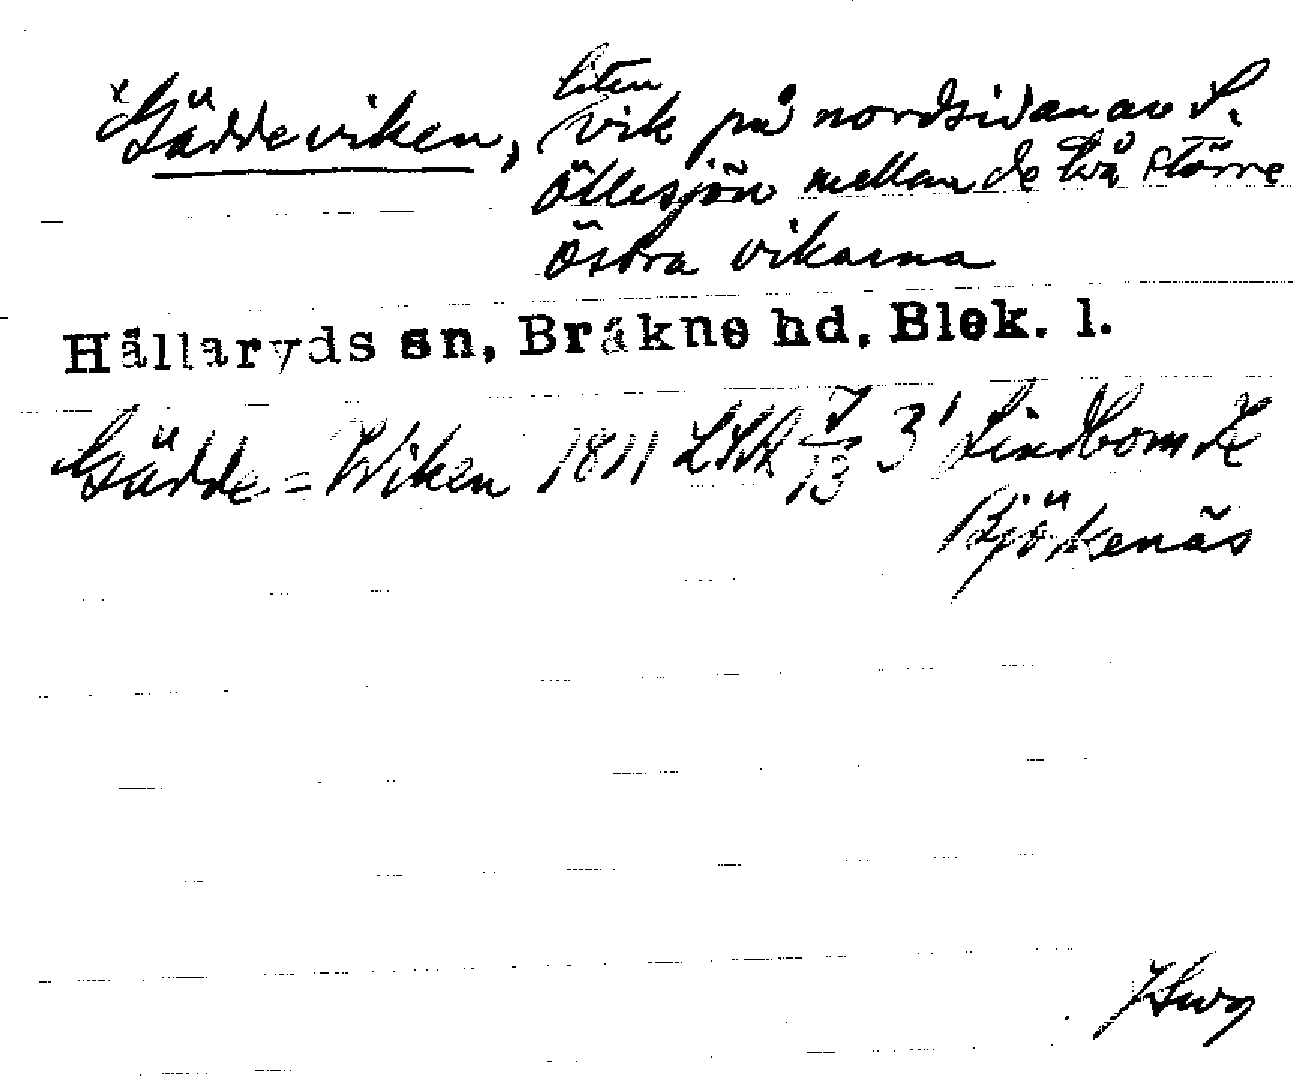 ˣGäddeviken, liten vik på nordsidan av S.
Öllesjön mellan de två större
östra vikarna
Hällaryds sn, Bräkne hd, Blek. l.
Gädde=Wiken 1811 LSA 3' Lindbom
Björkenäs